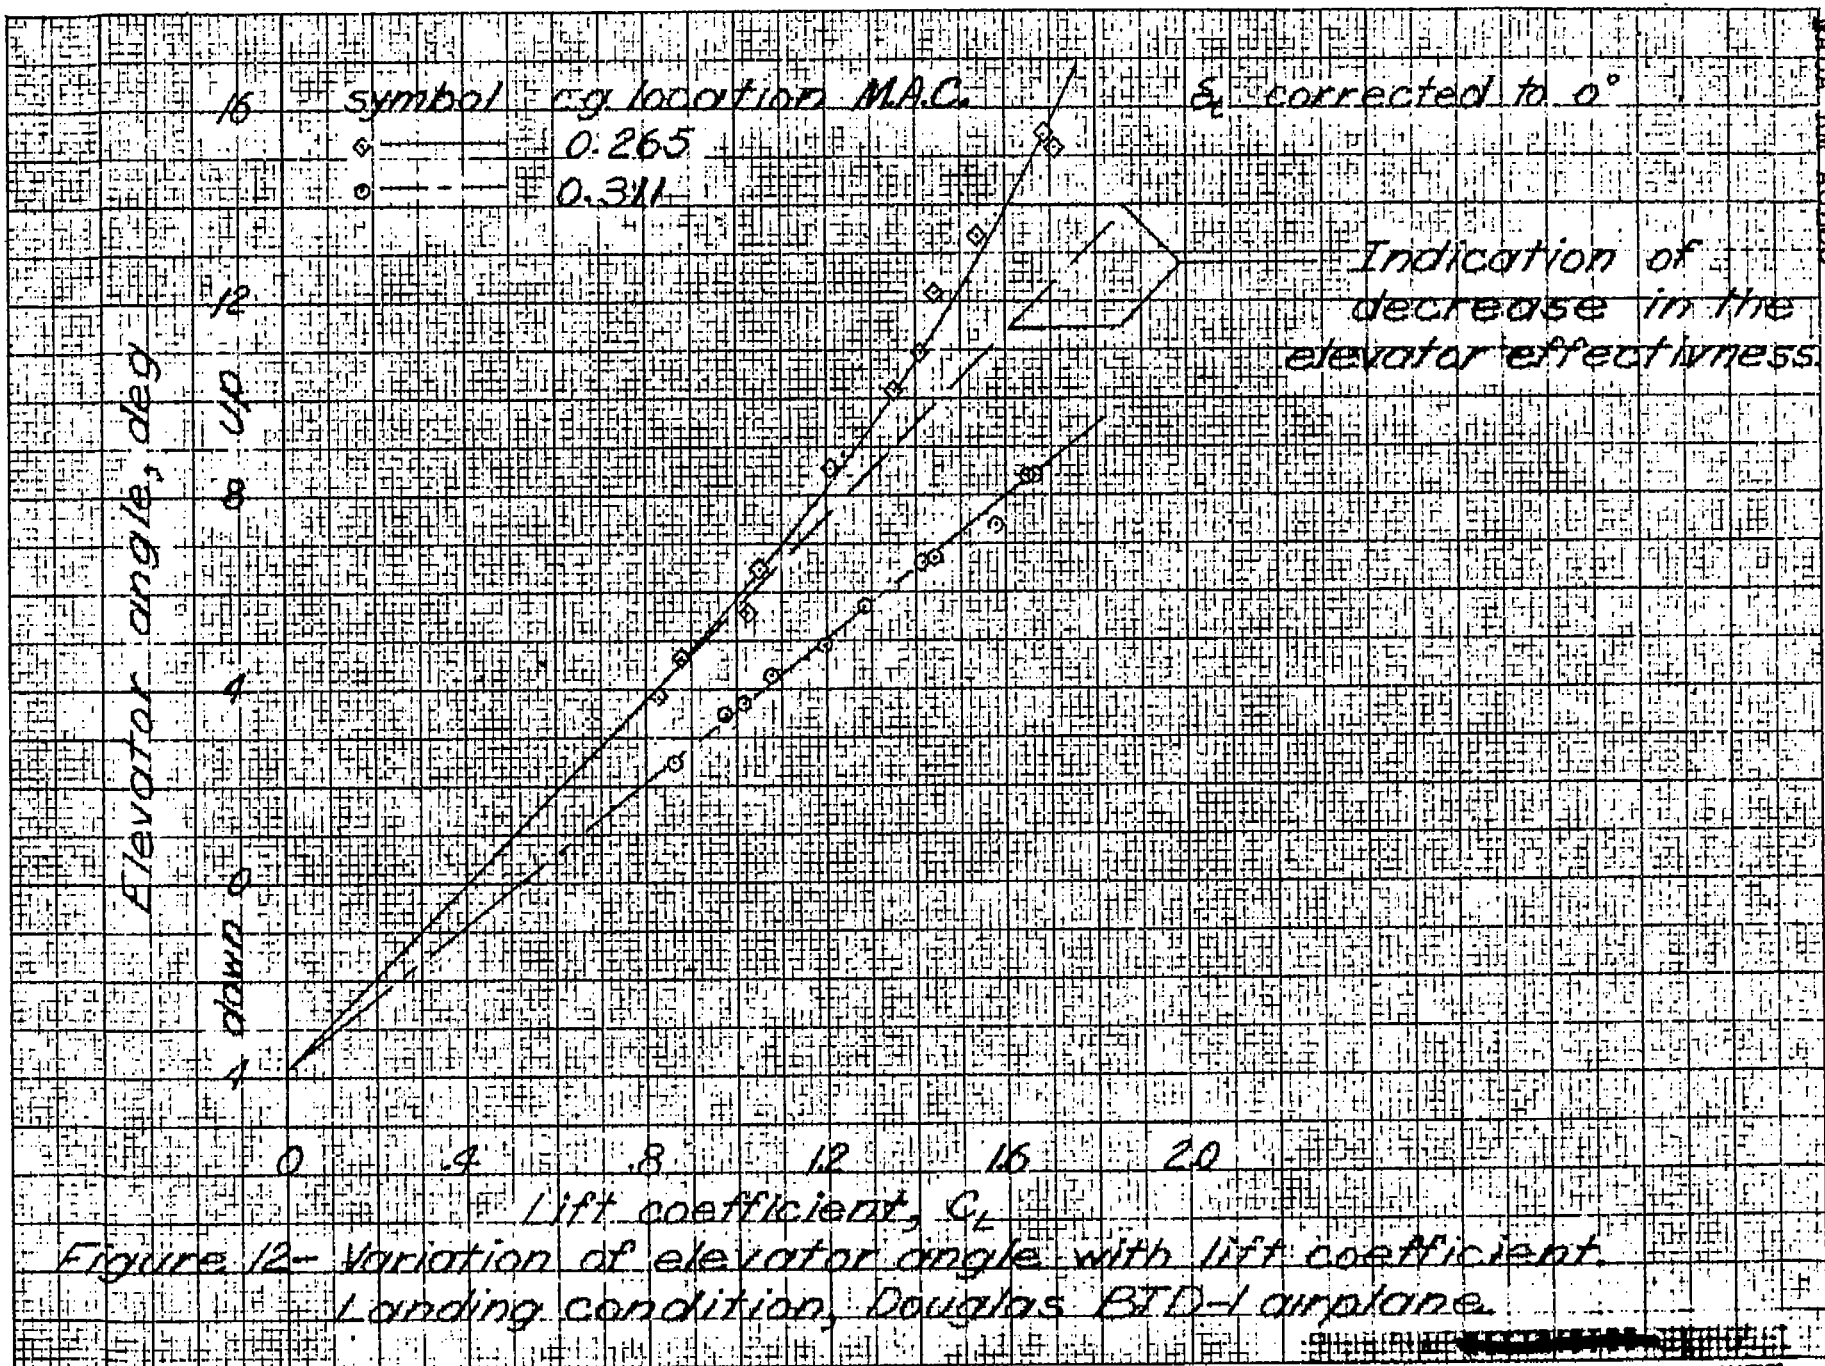 symbol cg location M.A.C.
0.265
0.311
δt corrected to 0°
Indication of
decrease in the
elevator effectivness.
Elevator angle, deg
down up
16
12
8
4
0
4
0 .4 .8 1.2 1.6 2.0
Lift coefficient, CL
Figure 12- Variation of elevator angle with lift coefficient.
Landing condition, Douglas BTD-1 airplane.